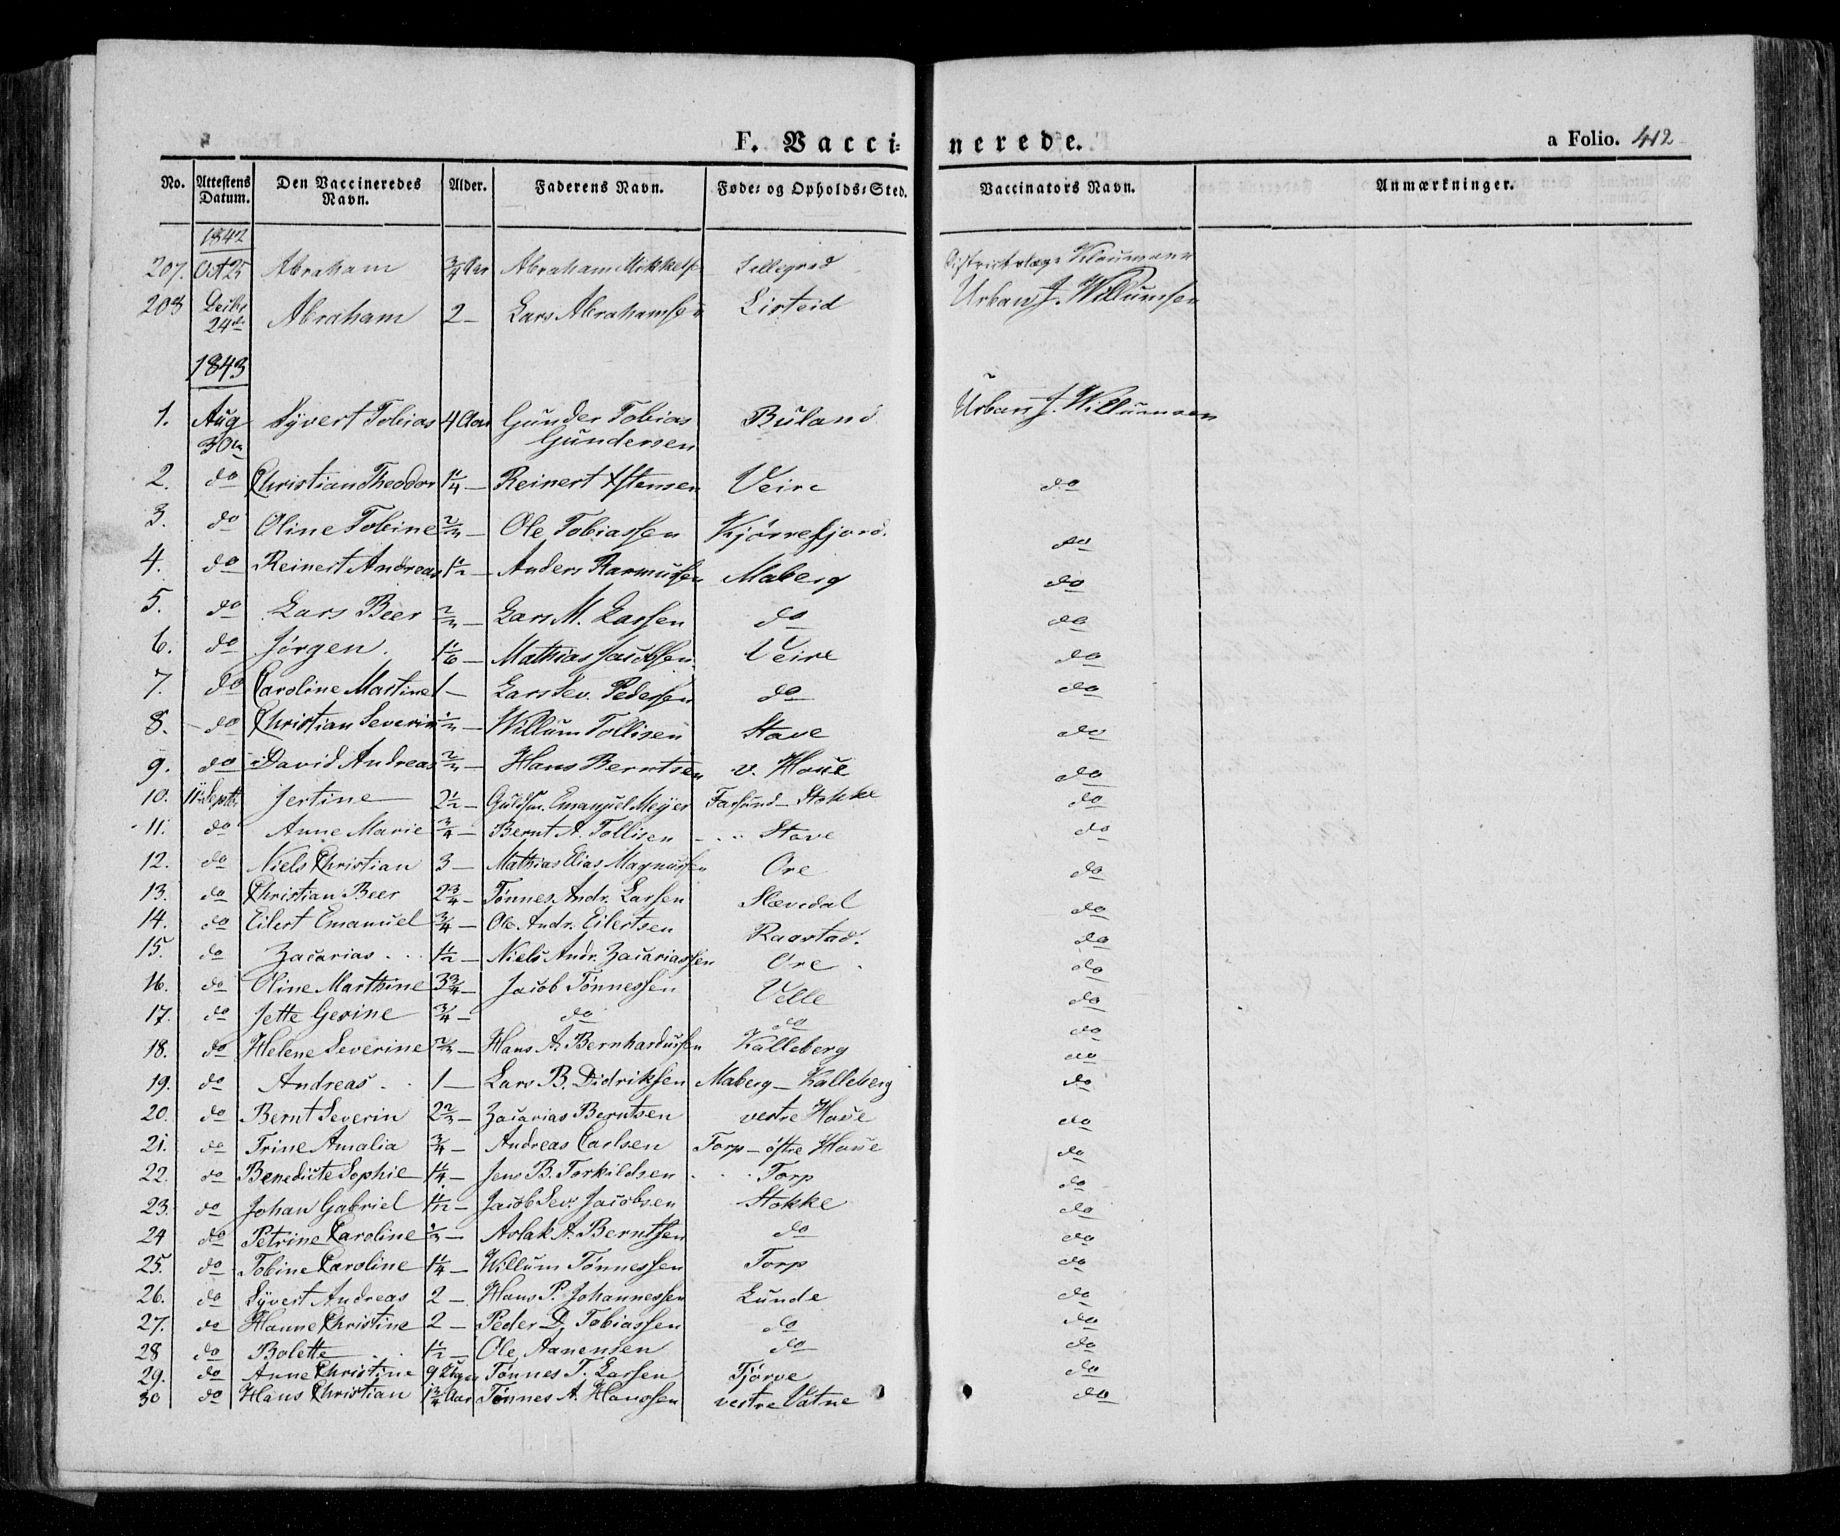 F. Vaccinerede. a Folio. 412
No. Attestens Datum. Den Vaccineredes Navn. Alder. Faderens Navn. Føde- og Opholds-Sted. Vaccinators Navn. Anmærkninger.
1842
207. Oct 25 Abraham 3/4 Aar Abraham Mikkels Districtslæge Klaumann
208 Decbr 24de Abraham 2 — Lars Abrahamsen Listeid Urban J. Willumsen
1843
1. Aug 30te Syvert Tobias 4 Aar Gunder Tobias Gundersen Buland Urban J. Willumsen
2. do Christian Theodor 1 1/4 — Reinert Østensen Veire do
3. do Oline Tobine 2/3 — Ole Tobiassen Kjørrefjord. do
4. do Reinert Andreas 1 1/2 — Anders Rasmussen Maberg do
5. do Lars Beer 2/3 — Lars M. Larssen do do
6. do Jørgen. 1 1/6 — Mathias Jacobsen. Veire do
7. do Caroline Martine 1 — Lars Sev. Pedersen do do
8. do Christian Severin 1/2 — Willum Tollisen Stave do
9. do David Andreas 2/3 — Hans Berntsen v. Houe do
10. 11te Septbr Jertine 2 1/2 — Guldsm. Emanuel Meyer Farsund — Stokke do
11. do Anne Marie 3/4 — Bernt A. Tollisen Stave do
12. do Niels Christian 3 — Mathias Elias Magnussen Ore do
13. do Christian Beer 2 3/4 — Tønnes Andr. Larssen Slevdal do
14. do Eilert Emanuel 3/4 — Ole Andr. Eilertsen Raastad. do
15. do Zacarias 1 1/2 — Niels Andr. Zacariassen Ore do
16. do Oline Marthine 3 3/4 — Jacob Tønnessen Velle do
17. do Jette Gerine 3/4 — do do do
18. do Helene Severine 2/3 — Hans A. Bernhardussen Kalleberg do
19. do Andreas 1 — Lars B. Didriksen Maberg — Kalleberg do
20. do Bernt Severin 2 2/3 — Zacarias Berntsen vestre Houe do
21. do Trine Amalia 3/4 — Andreas Carlsen Torp — østre Houe do
22. do Benedicte Sophie 1 1/4 — Jens B. Torkildsen Torp do
23. do Johan Gabriel 1 1/2 — Jacob Sev. Jacobsen Stokke do
24 do Petrine Caroline 1/3 — Aslak A. Berntsen do do
25. do Tobine Caroline 1 1/4 — Willum Tønnessen Torp do
26. do Syvert Andreas 2 — Hans P. Johannessen Lunde do
27. do Hanne Christine 2 — Peder D. Tobiassen do do
28 do Bolette 1 1/2 — Ole Aanensen do do
29. do Anne Christine 9 Uger Tønnes T. Larssen Tjørve do
30 do Hans Christian 1 3/4 Aar Tønnes A. Hanssen vestre Vatne do